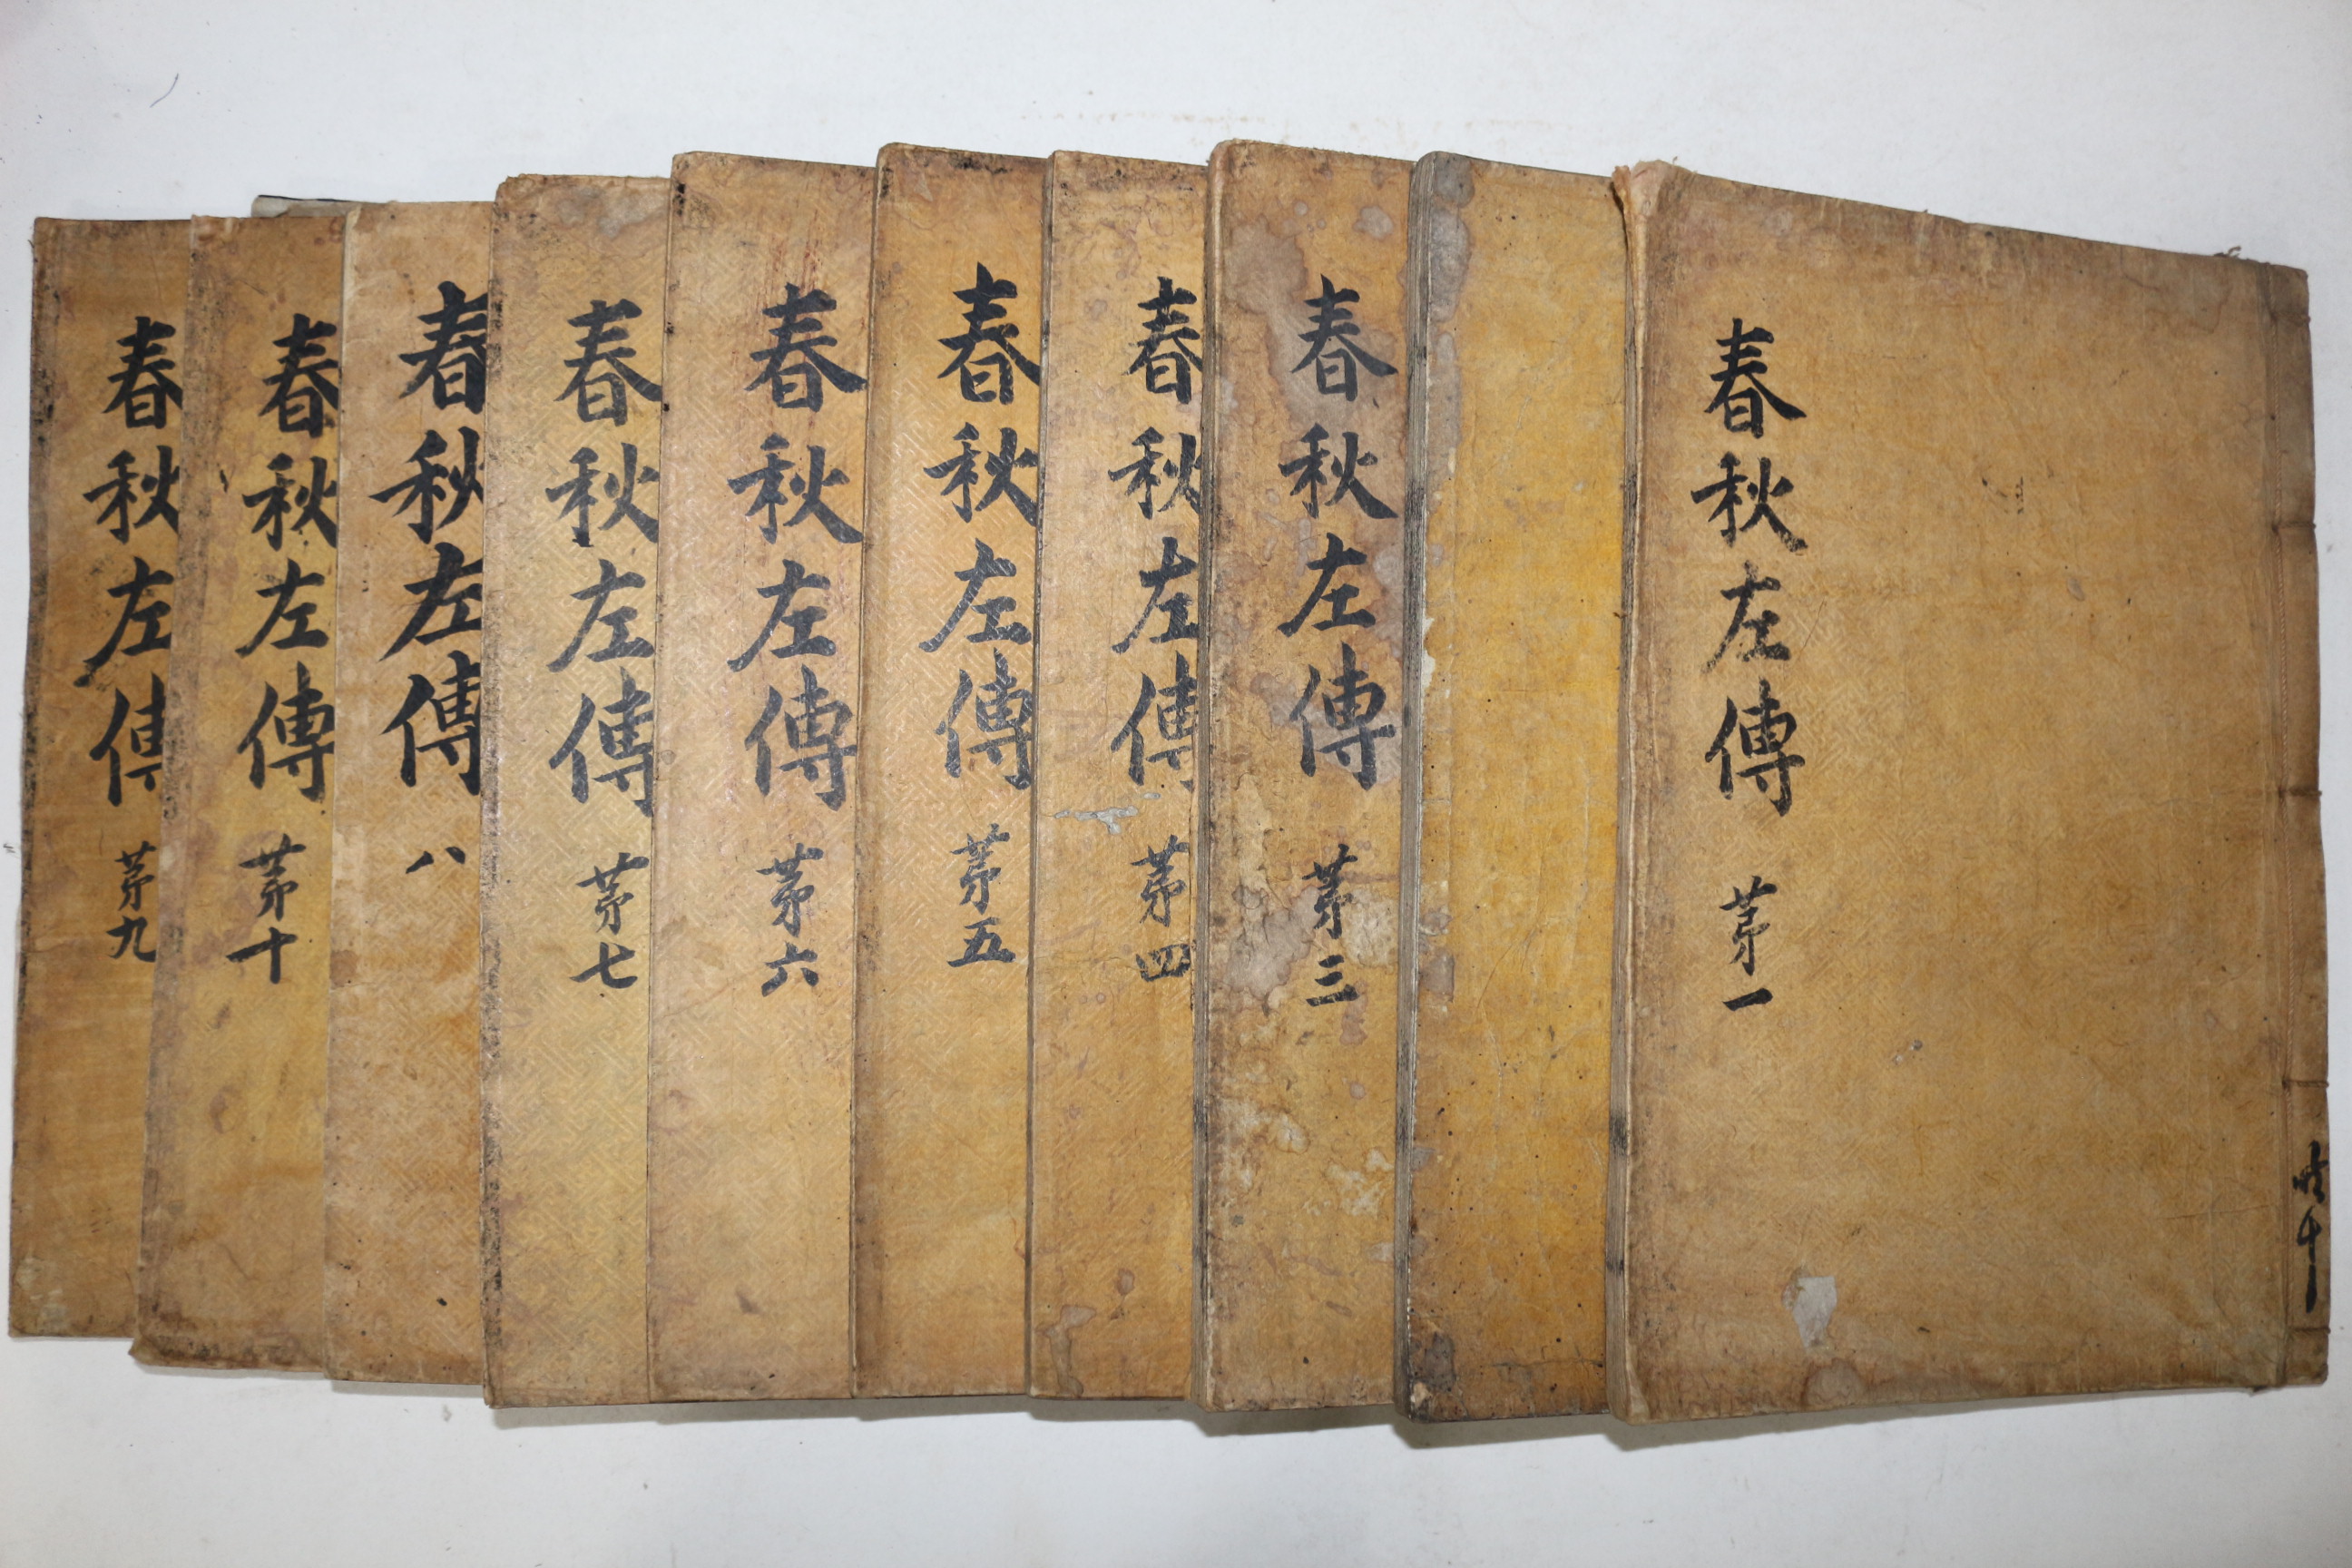 春秋左傳 苐一
春秋左傳 苐三
春秋左傳 苐四
春秋左傳 苐五
春秋左傳 苐六
春秋左傳 苐七
春秋左傳 八
春秋左傳 苐十
春秋左傳 苐九